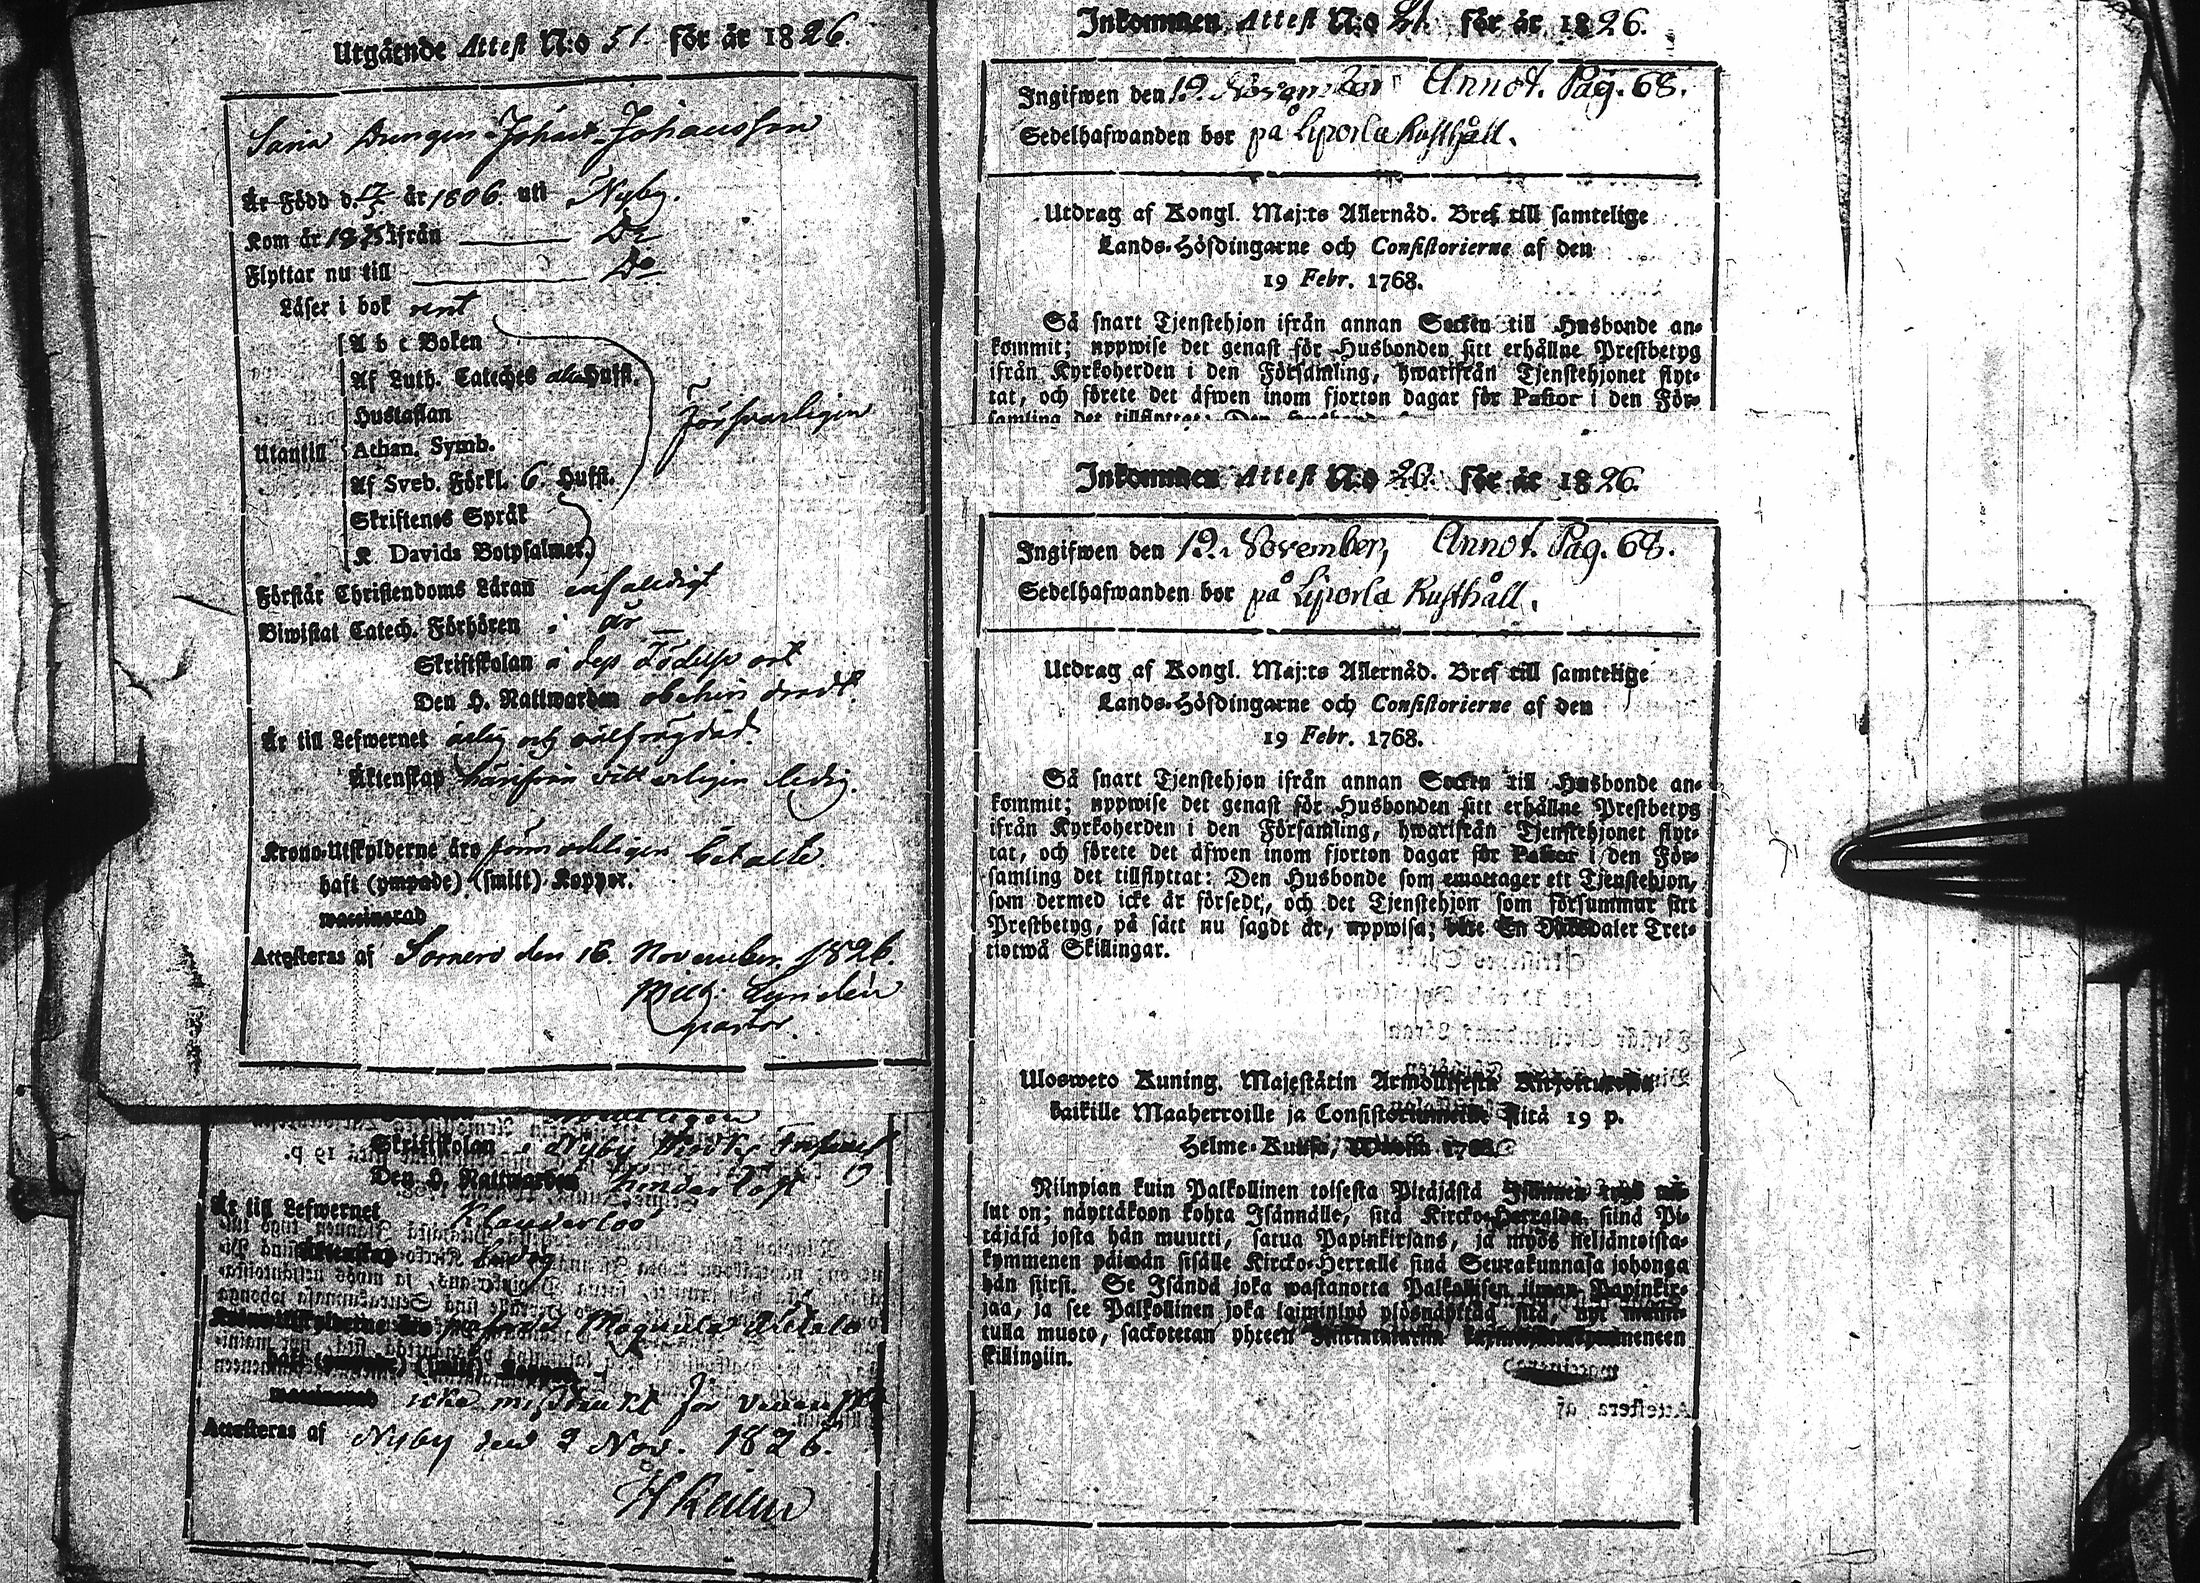 Utgående Attest N:o 51. för år 1826.
Drengen Johan Johansson
Är Född d. 17/5 år 1806 uti Nyby.
Kom år ifrån Do
Flyttar nu till Do
Läser i bok rent
A b c Boken
Af Luth. Cateches alla Hufst.
Hustaflan
Utantill Athan. Symb.
Försvarligen
Af Sveb. Förkl. 6 Hufst.
Skriftenes Språk
K. Davids Botpsalmer
Förstår Christendoms Läran enfaldigt
Biwistat Catech. Förhören i år
Skriftskolan å dess Födelse ort
Den H. Nattwarden obehindradt
Är till Lefwernet ärlig och välfrägdad.
Äktenskap härifrån vitterligen ledig.
Krono-Utskylderne äro förmodeligen betalte
haft (ympade) (smitt) Koppor.
waccinerad
Attesteras af Somero den 16. November 1826.
Mich: Lyndén
pastor.
Skriftskolan i Nyby
Den H. Nattwarden
Är till Lefwernet Klanderlös
Äktenskap Ledig
Krono-Utskylderne äro
haft (ympade) (smitt) Koppor
waccinerad icke för
Attesteras af Nyby den 2 Nov. 1826.
Inkommen Attest N:o 21. för år 1826.
Ingifwen den 19. November Annot. Pag. 68.
Sedelhafwanden bor på Liporla Rusthåll.
Utdrag af Kongl. Maj:ts Allernåd. Bref till samtelige
Lands-Höfdingarne och Consistorierne af den
19 Febr. 1768.
Så snart Tjenstehjon ifrån annan Socken till Husbonde an-
kommit; uppwise det genast för Husbonden sitt erhållne Prestbetyg
ifrån Kyrkoherden i den Församling, hwarifrån Tjenstehjonet flyt-
tat, och förete det äfwen inom fjorton dagar för Pastor i den För-
samling det tillflyttat: Den
Inkommen Attest N:o 20. för år 1826.
Ingifwen den 19. November, Annot. Pag. 68.
Sedelhafwanden bor på Liporla Rusthåll.
Utdrag af Kongl. Maj:ts Allernåd. Bref till samtelige
Lands-Höfdingarne och Consistorierne af den
19 Febr. 1768.
Så snart Tjenstehjon ifrån annan Socken till Husbonde an-
kommit; uppwise det genast för Husbonden sitt erhållne Prestbetyg
ifrån Kyrkoherden i den Församling, hwarifrån Tjenstehjonet flyt-
tat, och förete det äfwen inom fjorton dagar för Pastor i den För-
samling det tillflyttat: Den Husbonde som emottager ett Tjenstehjon,
som dermed icke är försedt, och det Tjenstehjon som försummar sitt
Prestbetyg, på sätt nu sagdt är, uppwisa; böte En Riksdaler Tret-
tiotwå Skillingar.
Ulosweto Kuning. Majestätin Armollisesta Kirjoituxesta
kaikille Maaherroille ja Consistoriumeille siitä 19 p.
Helme-Kuusa, Wuonna 1768.
Niinpian kuin Palkollinen toisesta Pitäjästä Isännen tygö tul-
lut on; näyttäkoon kohta Isännälle, sitä Kircko-Herralda siinä Pi-
täjäsä josta hän muutti, saatua Papinkirjans, ja myös neljäntoista-
kymmenen päiwän sisälle Kircko-Herralle siinä Seurakunnasa johonga
hän siirsi. Se Isändä joka wastanotta Palkollisen ilman Papinkir-
jaa, ja see Palkollinen joka laiminlyö ylösnäyttää sitä, nyt maini-
tulla muoto, sackotetan yhteen
killingiin.